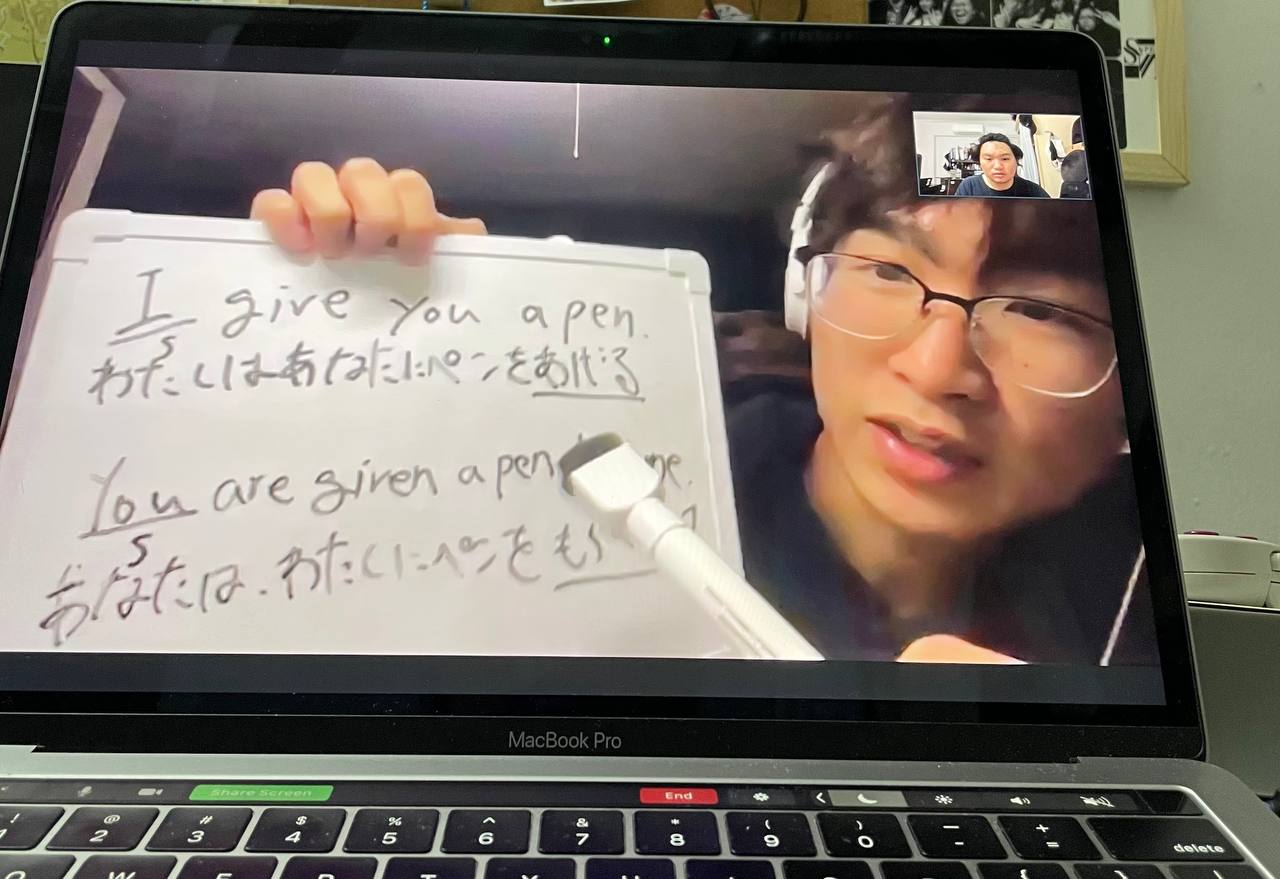 I give you a pen.
S
わたしはあなたにペンをあげる
You are given a pen
S
あなたは、わたしにペンを
MacBook Pro
Share Screen
End
! @ # $ % ^ & * ( ) _ +
2 3 4 5 6 7 8 9 0 - = delete